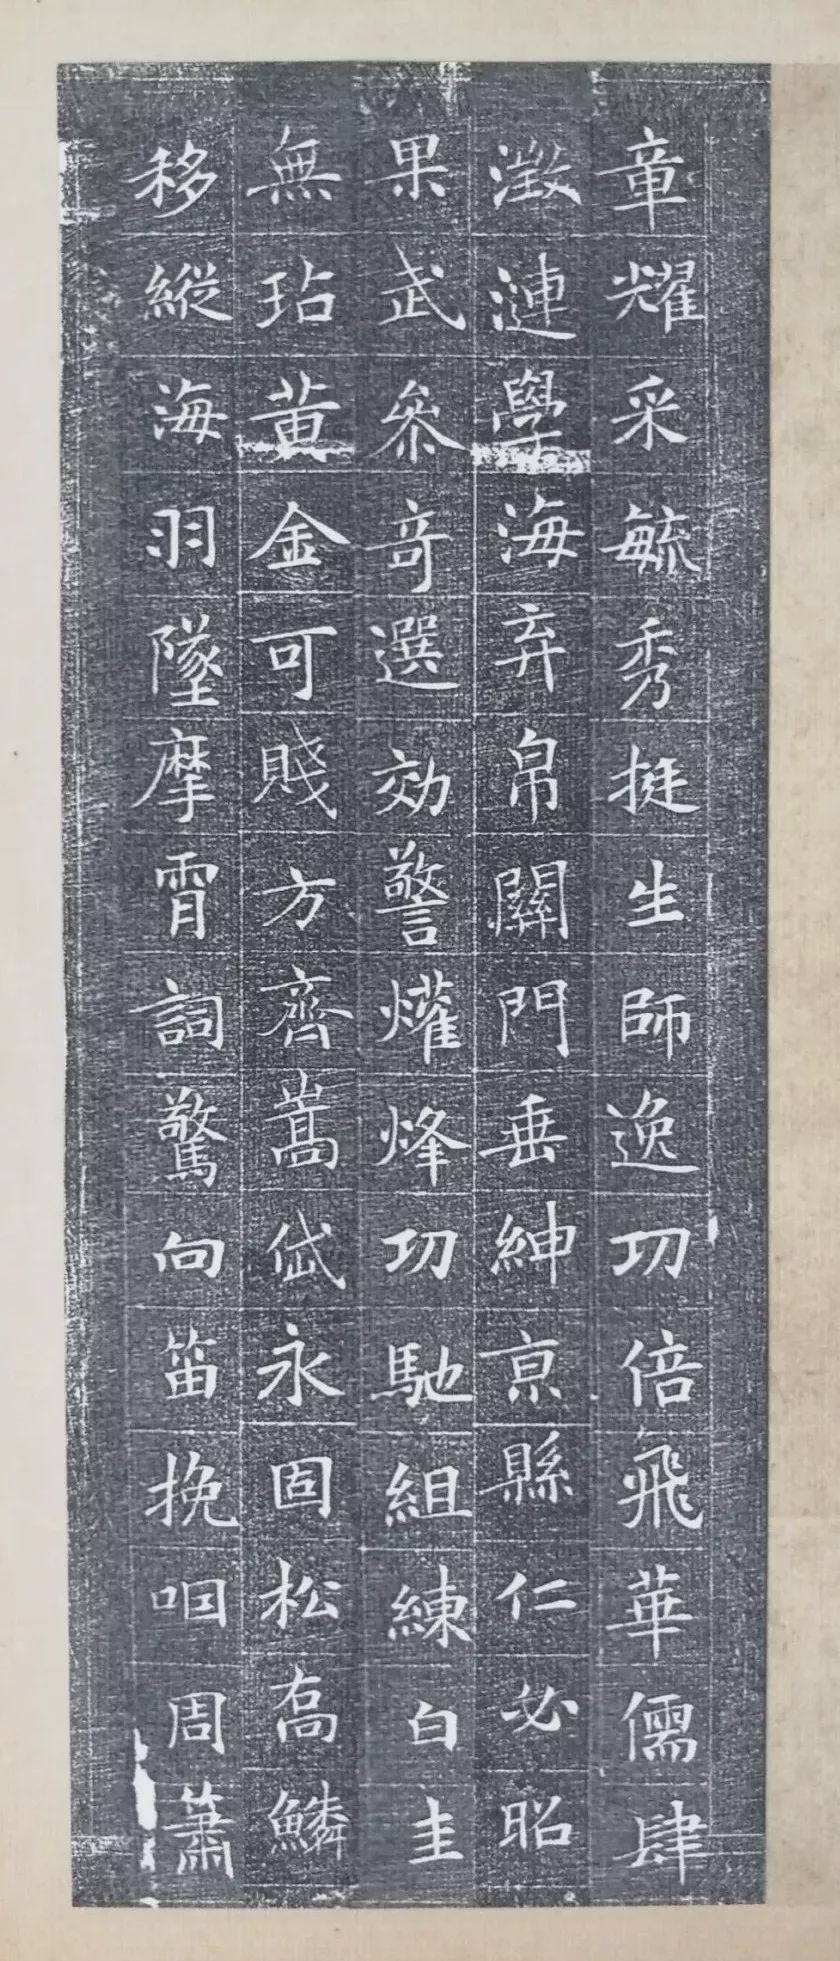 章耀采毓秀挺生師逸功倍飛華儒肆
澂漣學海弃帛關門垂紳京縣仁必昭
果武叅奇選効警爟烽功馳組練白圭
無玷黄金可賤方齊嵩岱永固松髙鱗
移縱海羽墜摩霄詞驚向笛挽咽周簫